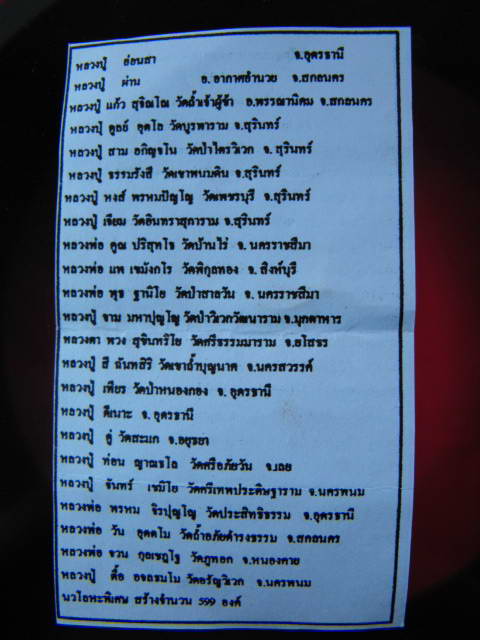 หลวงปู่ อ่อนสา จ.อุดรธานี
หลวงปู่ ผ่าน อ.อากาศอำนวย จ.สกลนคร
หลวงปู่ แก้ว สุจิณโณ วัดถ้ำเจ้าผู้ข้า อ.พรรณานิคม จ.สกลนคร
หลวงปู่ ดูลย์ อตุโล วัดบูรพาราม จ.สุรินทร์
หลวงปู่ สาม อกิญจโน วัดป่าไตรวิเวก จ.สุรินทร์
หลวงปู่ ธรรมรังสี วัดเขาพนมดิน จ.สุรินทร์
หลวงปู่ หงส์ พรหมปัญโญ วัดเพชรบุรี จ.สุรินทร์
หลวงปู่ เจียม วัดอินทราสุการาม จ.สุรินทร์
หลวงพ่อ คูณ ปริสุทโธ วัดบ้านไร่ จ.นครราชสีมา
หลวงพ่อ แพ เขมังกโร วัดพิกุลทอง จ.สิงห์บุรี
หลวงพ่อ พุธ ฐานิโย วัดป่าสาลวัน จ.นครราชสีมา
หลวงปู่ จาม มหาปุญโญ วัดป่าวิเวกวัฒนาราม จ.มุกดาหาร
หลวงตา พวง สุขินทริโย วัดศรีธรรมมาราม จ.ยโสธร
หลวงปู่ สี ฉันทสิริ วัดเขาถ้ำบุญนาค จ.นครสวรรค์
หลวงปู่ เพียร วัดป่าหนองกอง จ.อุดรธานี
หลวงปู่ ดีเนาะ จ.อุดรธานี
หลวงปู่ ดู่ วัดสะแก จ.อยุธยา
หลวงปู่ ท่อน ญาณธโล วัดศรีอภัยวัน จ.เลย
หลวงปู่ จันทร์ เขมิโย วัดศรีเทพประดิษฐาราม จ.นครพนม
หลวงพ่อ พรหม จิรปุญโญ วัดประสิทธิธรรม จ.อุดรธานี
หลวงพ่อ วัน อุตตโม วัดถ้ำอภัยดำรงธรรม จ.สกลนคร
หลวงพ่อ จวน กุลเชฏโฐ วัดภูทอก จ.หนองคาย
หลวงปู่ ตื้อ อจลธมโม วัดอรัญวิเวก จ.นครพนม
นวโลหะพิเศษ สร้างจำนวน 599 องค์